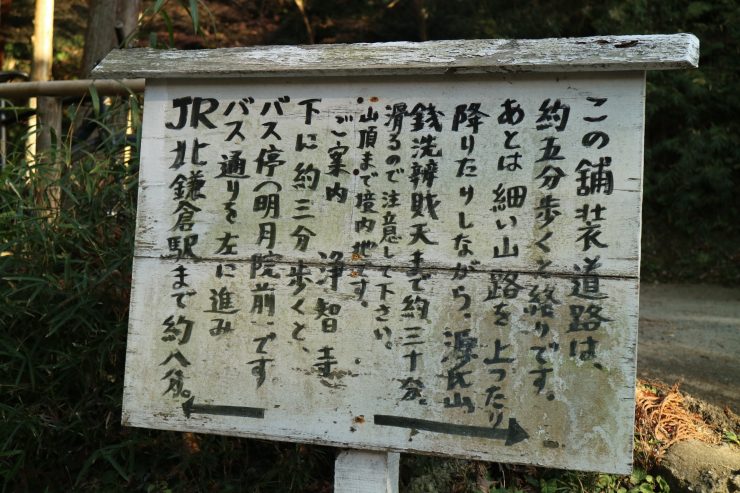 この舗装道路は、
約五分歩くと終りです。
あとは細い山路を上ったり
降りたりしながら、源氏山
銭洗辨賊天まで約三十分。
滑るので注意して下さい。
・山頂まで境内地です。
ご案内　浄智寺
下に約三分歩くと、
バス停（明月院前）です
バス通りを左に進み
JR北鎌倉駅まで約八分。